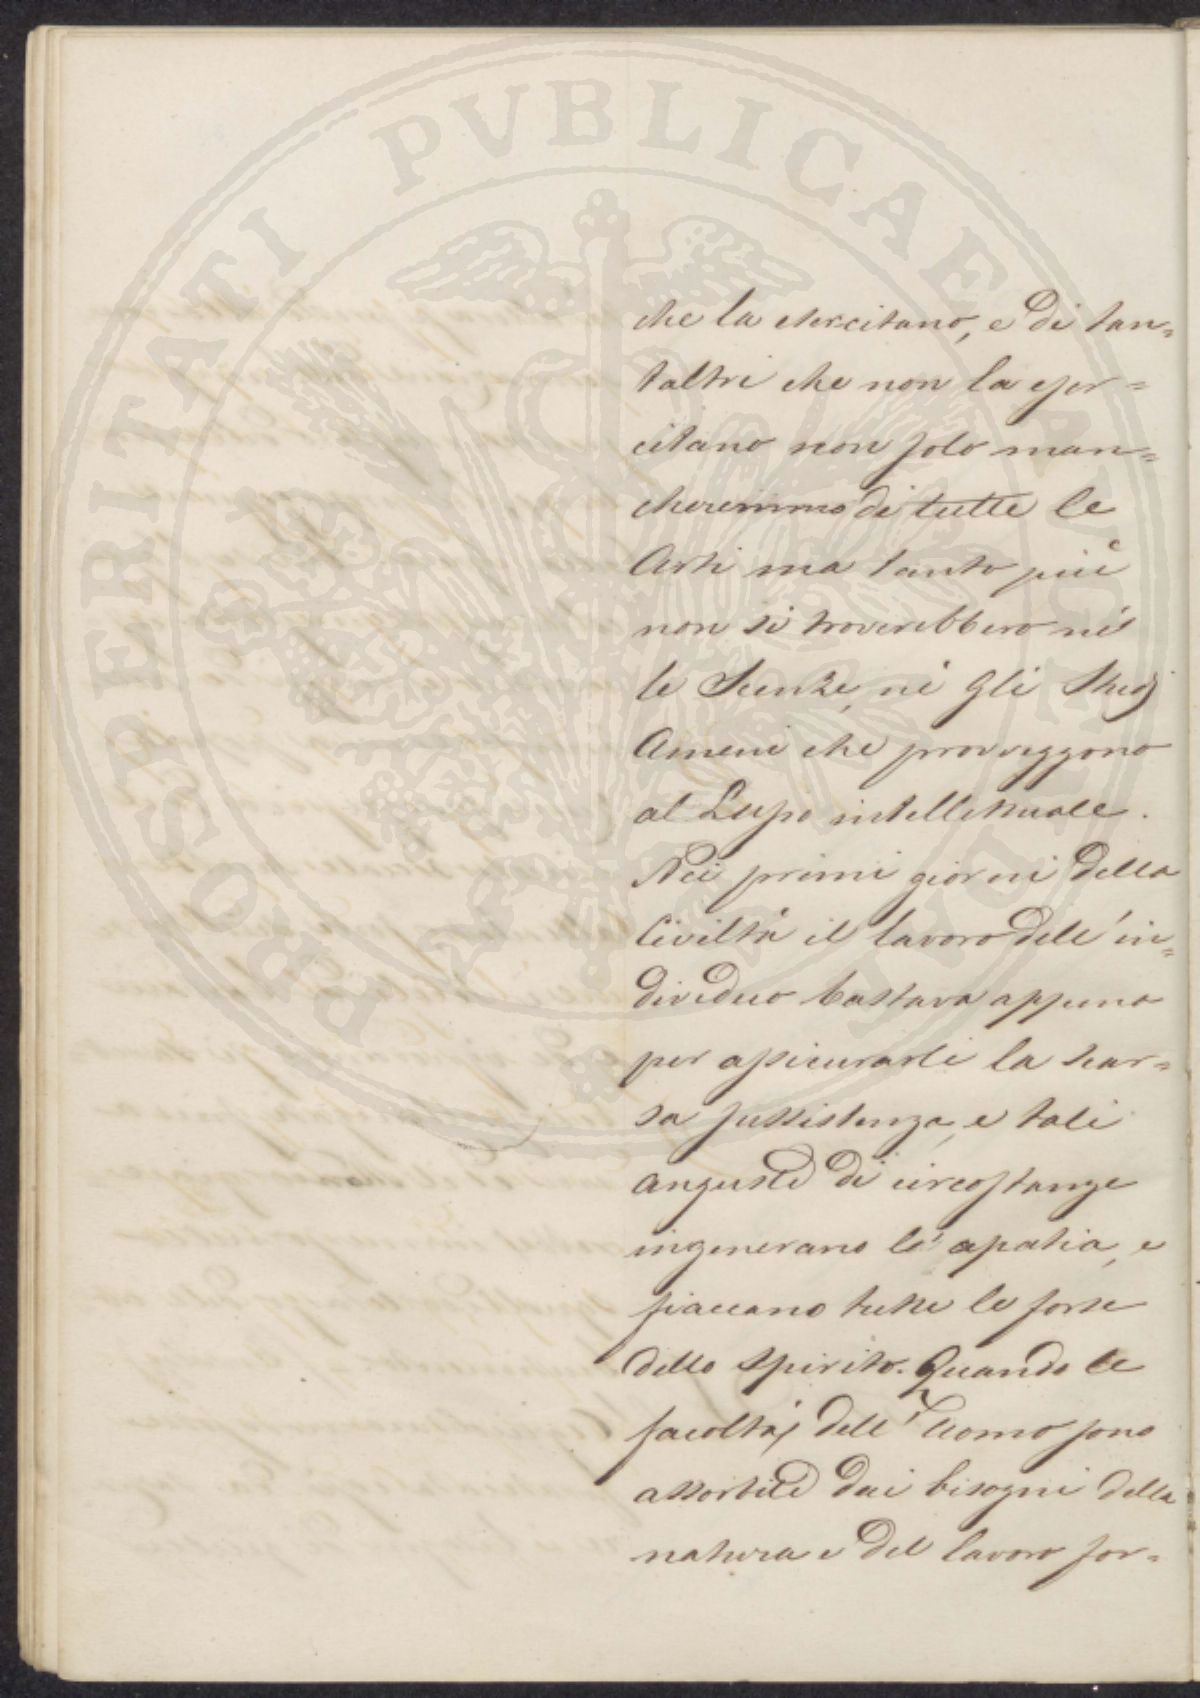 PROSPERITATI PVBLICAE AVGENDAE
che la esercitano, e di tan=
t'altri che non la eser=
citano non solo man=
cheremmo di tutte le
Arti ma tanto più
non si troverebbero nè
le Scienze, nè gli Studj
Ameni che provveggono
al Lusso intellettuale.
Nei primi giorni della
Civiltà il lavoro dell'in=
dividuo bastava appena
per assicurarli la scar=
sa sussistenza, e tali
angustie di circostanze
ingenerano l'apatia, e
fiaccano tutte le forze
dello Spirito. Quando le
facoltà dell'Uomo sono
assorbite dai bisogni della
natura e del lavoro for=